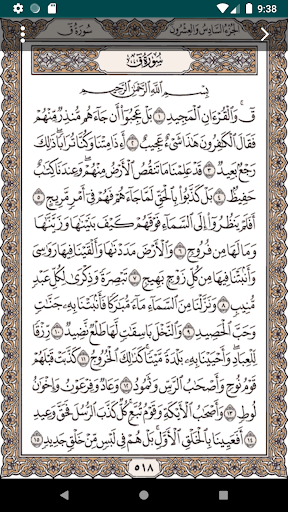 9:38
سُورَةُ قٓ
الجُزءُ السَّادِسُ وَالعِشرُونَ
سُورَةُ قٓ
بِسۡمِ ٱللَّهِ ٱلرَّحۡمَٰنِ ٱلرَّحِيمِ
قٓۚ وَٱلۡقُرۡءَانِ ٱلۡمَجِيدِ ١ بَلۡ عَجِبُوٓاْ أَن جَآءَهُم مُّنذِرٞ مِّنۡهُمۡ
فَقَالَ ٱلۡكَٰفِرُونَ هَٰذَا شَيۡءٌ عَجِيبٌ ٢ أَءِذَا مِتۡنَا وَكُنَّا تُرَابٗاۖ ذَٰلِكَ
رَجۡعُۢ بَعِيدٞ ٣ قَدۡ عَلِمۡنَا مَا تَنقُصُ ٱلۡأَرۡضُ مِنۡهُمۡۖ وَعِندَنَا كِتَٰبٌ
حَفِيظُۢ ٤ بَلۡ كَذَّبُواْ بِٱلۡحَقِّ لَمَّا جَآءَهُمۡ فَهُمۡ فِيٓ أَمۡرٖ مَّرِيجٍ ٥
أَفَلَمۡ يَنظُرُوٓاْ إِلَى ٱلسَّمَآءِ فَوۡقَهُمۡ كَيۡفَ بَنَيۡنَٰهَا وَزَيَّنَّٰهَا
وَمَا لَهَا مِن فُرُوجٖ ٦ وَٱلۡأَرۡضَ مَدَدۡنَٰهَا وَأَلۡقَيۡنَا فِيهَا رَوَٰسِيَ
وَأَنۢبَتۡنَا فِيهَا مِن كُلِّ زَوۡجِۭ بَهِيجٖ ٧ تَبۡصِرَةٗ وَذِكۡرَىٰ لِكُلِّ عَبۡدٖ
مُّنِيبٖ ٨ وَنَزَّلۡنَا مِنَ ٱلسَّمَآءِ مَآءٗ مُّبَٰرَكٗا فَأَنۢبَتۡنَا بِهِۦ جَنَّٰتٖ
وَحَبَّ ٱلۡحَصِيدِ ٩ وَٱلنَّخۡلَ بَاسِقَٰتٖ لَّهَا طَلۡعٞ نَّضِيدٞ ١٠ رِّزۡقٗا
لِّلۡعِبَادِۖ وَأَحۡيَيۡنَا بِهِۦ بَلۡدَةٗ مَّيۡتٗاۚ كَذَٰلِكَ ٱلۡخُرُوجُ ١١ كَذَّبَتۡ قَبۡلَهُمۡ
قَوۡمُ نُوحٖ وَأَصۡحَٰبُ ٱلرَّسِّ وَثَمُودُ ١٢ وَعَادٞ وَفِرۡعَوۡنُ وَإِخۡوَٰنُ
لُوطٖ ١٣ وَأَصۡحَٰبُ ٱلۡأَيۡكَةِ وَقَوۡمُ تُبَّعٖۚ كُلّٞ كَذَّبَ ٱلرُّسُلَ فَحَقَّ وَعِيدِ
١٤ أَفَعَيِينَا بِٱلۡخَلۡقِ ٱلۡأَوَّلِۚ بَلۡ هُمۡ فِي لَبۡسٖ مِّنۡ خَلۡقٖ جَدِيدٖ ١٥
٥١٨